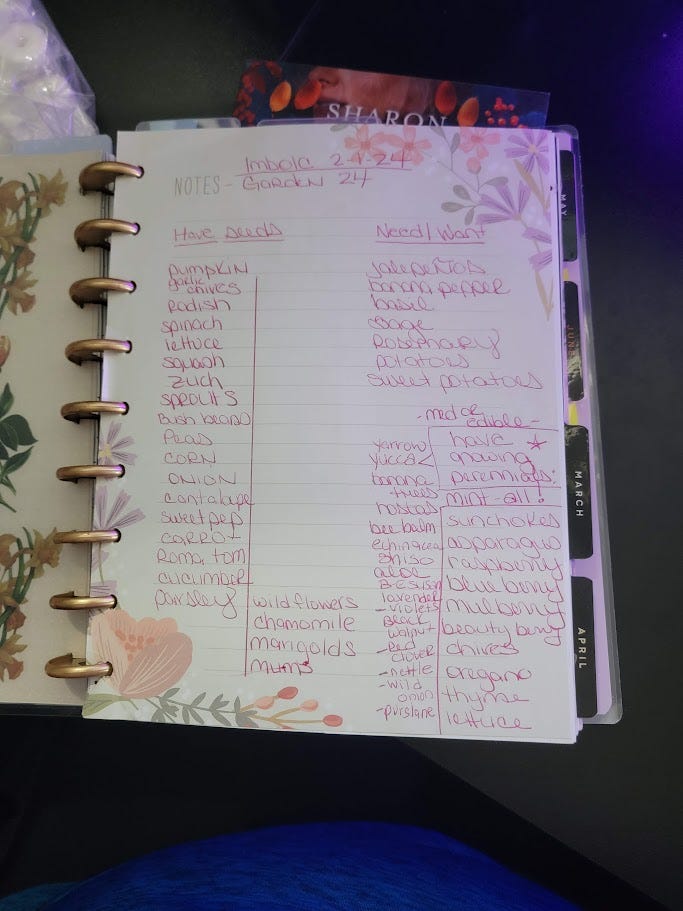 SHARON
Imbolc 2-1-24
NOTES - Garden 24
Have Seeds
pumpkin
garlic
chives
Radish
spinach
lettuce
squash
zuch
sprouts
Bush beans
Peas
CORN
ONION
cantalope
sweet pep
carrot
Roma tom
cucumber
parsley
wildflowers
chamomile
marigolds
mums
Need/Want
jalepeños
banana pepper
basil
sage
Rosemary
potatoes
sweet potatoes
-med or
edible-
have
growing
perennials:
mint-all!
yarrow
yucca
banana
trees
hostas
bee balm
echinacea
shiso
aloe
B-E Susan
lavender
-violets
Black
walnut
-red
clover
-nettle
-wild
onion
-purslane
sunchokes
asparagus
raspberry
blueberry
mulberry
beauty berry
chives
oregano
thyme
lettuce
MAY
JUNE
MARCH
APRIL